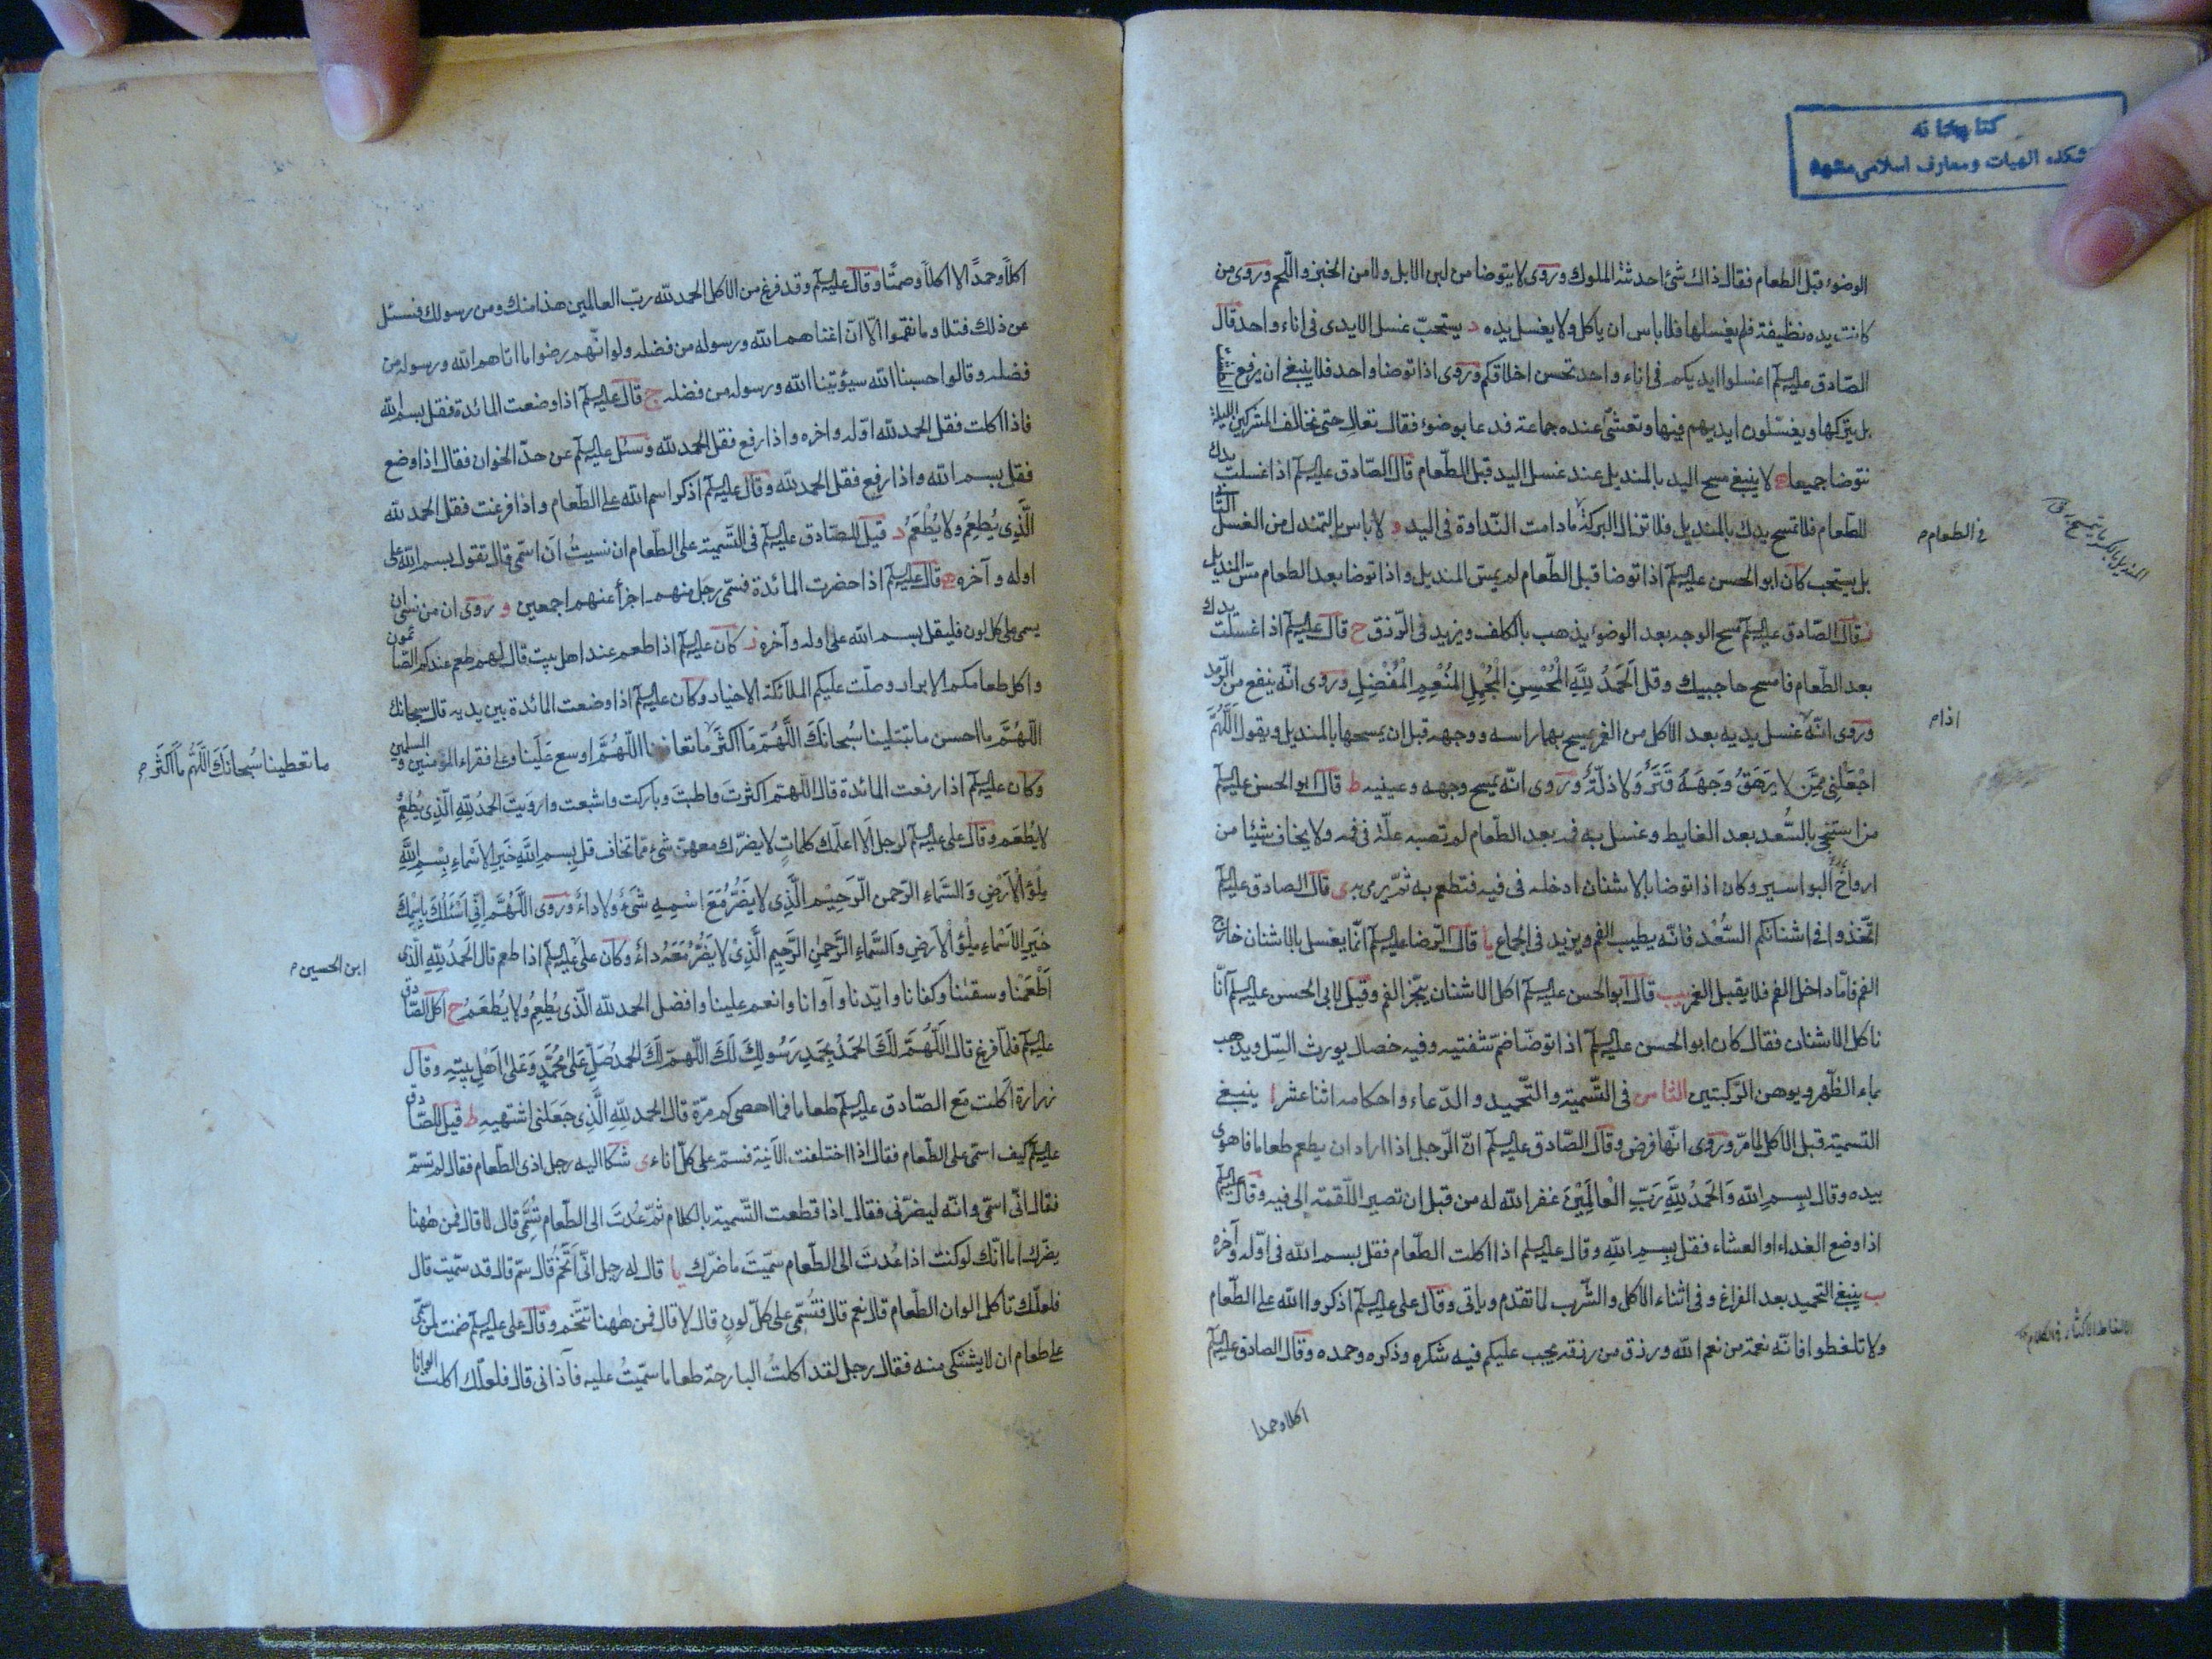 كتابخانه
شكده الهيات ومعارف اسلامى مشهد
الوضوء قبل الطعام فقال ذاك شئ احدثته الملوك وروى لا يتوضا من لبن الابل ولا من الخبز واللحم وروى من
كانت يده نظيفة فلم يغسلها فلا باس ان ياكل ولا يغسل يده د يستحبّ غسل الايدى فى اناء واحد قال
الصّادق عليه السلم اغسلوا ايديكم فى اناء واحد تحسن اخلاقكم وروى اذا توضا واحد فلا ينبغى ان يرفع
بل يتركها ويغسلون ايديهم فيها وتعشّى عنده جماعة فدعا بوضوء فقال تعال حتى نخالف المشركين الليلة
نتوضا جميعا ه لا ينبغى مسح اليد بالمنديل عند غسل اليد قبل الطّعام قال الصّادق عليه السلم اذا غسلت يدك
للطعام فلا تمسح يدك بالمنديل فلا تزال البركة ما دامت النّداوة فى اليد و لا باس بالتمندل من الغسل
فى الطعام م
بل يستحب كان ابو الحسن عليه السلم اذا توضا قبل الطّعام لم يمسّ المنديل واذا توضا بعد الطعام مسّ المنديل
ز قال الصّادق عليه السلم مسح الوجه بعد الوضوء يذهب بالكلف ويزيد فى الرّزق ح قال عليه السلم اذا غسلت يدك
بعد الطّعام فامسح حاجبيك وقل اَلحَمْدُ لِلَّهِ الْمُحْسِنِ الْمُجْمِلِ الْمُنْعِمِ الْمُفْضِلِ وروى انّه ينفع من الرّمد
وروى انّه غسل يديه بعد الاكل من الغمر فمسح بهما راسه ووجهه قبل ان يمسحها بالمنديل ويقول اَللَّهُمَّ
اذا م
اجْعَلْنى مِمَّن لا يَرهَقُ وَجهَهُ قَتَرٌ وَلا ذلّةٌ وروى انّه يمسح وجهه وعينيه ط قال ابو الحسن عليه السلم
من استنجى بالسُّعد بعد الغايط وغسل به فمه بعد الطّعام لم تصبه علّة فى فمه ولا يخاف شيئا من
ارواح البواسير وكان اذا توضا بالاشنان ادخله فى فيه فتطعم به ثمّ يرمى به ى قال الصادق عليه السلم
اتّخذوا فى اشنانكم السُّعْد فانّه يطيب الفم ويزيد فى الجماع يا قال الرّضا عليه السلم انّما يغسل بالاشنان خارج
الفم فامّا داخل الفم فلا يقبل الغمر يب قال ابو الحسن عليه السلم اكل الاشنان يبخّر الفم وقيل لابى الحسن عليه السلم انّا
ناكل الاشنان فقال كان ابو الحسن عليه السلم اذا توضّا ضمّ شفتيه وفيه خصال يورث السّل ويذهب
بماء الظّهر ويوهن الرّكبتين الثامن فى التّسمية والتّحميد والدّعاء واحكامه اثنا عشر ا ينبغى
التسمية قبل الاكل لما مرّ وروى انّها فرض وقال الصّادق عليه السلم انّ الرّجل اذا اراد ان يطعم طعاما فاهوى
بيده وقال بِسمِ اللهِ وَالحَمدُ لِلَّهِ رَبِّ الْعالَمِيْنَ غفر الله له من قبل ان تصير اللّقمة الى فيه وقال عليه السلم
اذا وضع الغداء او العشاء فقل بِسمِ اللهِ وقال عليه السلم اذا اكلت الطّعام فقل بسم الله فى اوّله وآخره
ب ينبغى التحميد بعد الفراغ وفى اثناء الاكل والشّرب لما تقدم وياتى وقال على عليه السلم اذكروا الله على الطّعام
ولا تلغطوا فانّه نعمة من نعم الله ورزق من رزقه يجب عليكم فيه شكره وذكره وحمده وقال الصادق عليه السلم
اكلا وحمدا
اكلاً وحمدًا لا اكلاً وصمتًا وقال عليه السلم وقد فرغ من الاكل الحمد لله ربّ العالمين هذا منك ومن رسولك فسئل
عن ذلك فتلا وما نقموا الّا انّ اغناهم الله ورسوله من فضله ولو انّهم رضوا ما اتاهم الله ورسوله من
فضله وقالوا حسبنا الله سيؤتينا الله ورسوله من فضله ج قال عليه السلم اذا وضعت المائدة فقل بسم الله
فاذا اكلت فقل الحمد لله اوّله واخره واذا رفع فقل الحمد لله وسئل عليه السلم عن حدّ الخوان فقال اذا وضع
فقل بسم الله واذا رفع فقل الحمد لله وقال عليه السلم اذكر اسم الله على الطّعام واذا فرغت فقل الحمد لله
الَّذِى يُطعِمُ ولا يُطْعَمُ د قيل للصّادق عليه السلم فى التّسمية على الطّعام ان نسيتُ ان اسمّى قال تقول بسم الله على
اوله وآخره ه قال عليه السلم اذا حضرت المائدة فسمّى رجل منهم اجزأ عنهم اجمعين و روى ان من نسى ان
يسمى على كل لون فليقل بسم الله على اوله وآخره ز كان عليه السلم اذا طعم عند اهل بيت قال لهم طعم عندكم الصّائمون
واكل طعامكم الابرار وصلّت عليكم الملائكة الاخيار وكان عليه السلم اذا وضعت المائدة بين يديه قال سبحانك
اللّهُمَّ ما احسن ما تبتلينا سُبحانَكَ اللَّهُمّ مَا اكثرَ ما تعافينا اللّهُمَّ اوسع عَلَينا وعلى فقراء المؤمنين والمسلمين
ما تعطينا سُبحانَكَ اللَّهُمَّ ما اَكثَر م
وكان عليه السلم اذا رفعت المائدة قال اللّهمّ اكثرتَ واطبتَ وباركت واشبعت وارويتَ الحمدُ للهِ الّذِى يُطعِمُ
لا يُطعَم وقال على عليه السلم لرجل الا اعلّمك كلماتٍ لا يضرّك معهنّ شئ ممّا تخاف قل بِسمِ اللهِ خَيرِ الاَسْماءِ بِسْمِ اللهِ
مِلْؤ الْاَرضِ وَالسَّمَاءِ الرّحمن الرَّحِيْم الَّذِى لا يَضُرُّ مَعَ اسْمِهِ شَئٌ ولا داءٌ وروى اللَّهُمَّ اِنّى اَسْئَلُكَ بِاسْمِكَ
خَيرِ الاَسْماءِ مِلْؤ الْاَرضِ وَالسَّماءِ الرَّحمٰنِ الرَّحِيمِ الَّذِىْ لا يَضُرُّ مَعَهُ داءٌ وكان على عليه السلم اذا طعم قال اَلحَمدُ لِلّهِ الّذى
ابن الحسين م
اَطْعَمَنا وسقىٰنا وكفانا وايّدنا وآوانا وانعم علينا وافضل الحمد لله الّذى يُطعِمُ ولا يُطعَمُ ح اكل الصّادق
عليه السلم فلمّا فرغ قال اَللّهُمَّ لَكَ الحَمدُ بِحَمدِ رَسُولِكَ لَكَ اللّهمّ لَكَ الحمدُ صَلِّ عَلىٰ مُحَمَّدٍ وَعَلىٰ اَهْلِ بيتِهِ وقال
زرارة اكلت مع الصّادق عليه السلم طعاما فما احصى كم مرّة قال الحمد للهِ الَّذِى جَعَلنى اشتهيهِ ط قيل للصّادق
عليه السلم كيف اسمّى على الطّعام فقال اذا اختلفت الآنية فسمّ على كلّ اناء ى شكا اليه رجل اذى الطّعام فقال لم تسمّ
فقال انّى اسمّى وانّه ليضرّنى فقال اذا قطعت التّسمية بالكلام ثمّ عُدتَ الى الطّعام تُسمّى قال لا قال فمن ههنا
يضرّك اما انّك لو كنت اذا عُدتَ الى الطّعام سمّيتَ ما ضرّك يا قال له رجل انّى اَتّخم قال سمّ قال قد سمّيت قال
فلعلّك تاكل الوان الطّعام قال نعم قال فتُسمّى على كلّ لونٍ قال لا قال فمن هٰهنا تتّخم وقال على عليه السلم ضمنت لمن سمّى
على طعام ان لا يشتكى منه فقال رجل لقد اكلتُ البارحة طعاما سمّيتُ عليه فآذانى قال فلعلّك اكلت الوانا